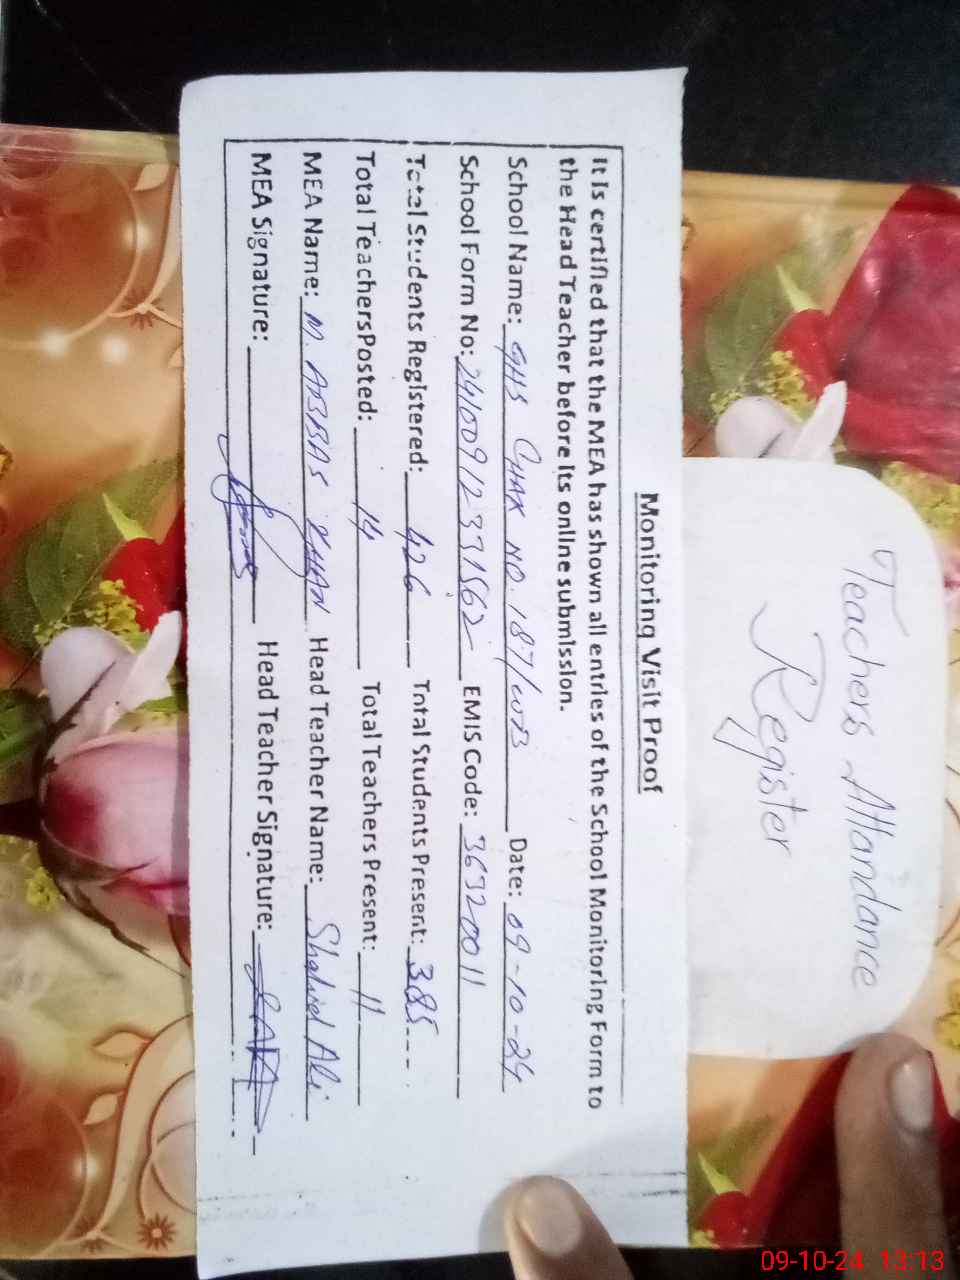 Teachers Attandance
Register
Monitoring Visit Proof
It is certified that the MEA has shown all entries of the School Monitoring Form to
the Head Teacher before its online submission.
School Name: GHS CHAK NO. 187/WB Date: 09-10-24
School Form No: 24100912331562 EMIS Code: 36320011
Total Students Registered: 426 Total Students Present: 385
Total TeachersPosted: 14 Total Teachers Present: 11
MEA Name: M. ABBAS KHAN Head Teacher Name: Shahid Ali
MEA Signature: Head Teacher Signature:
09-10-24 13:13